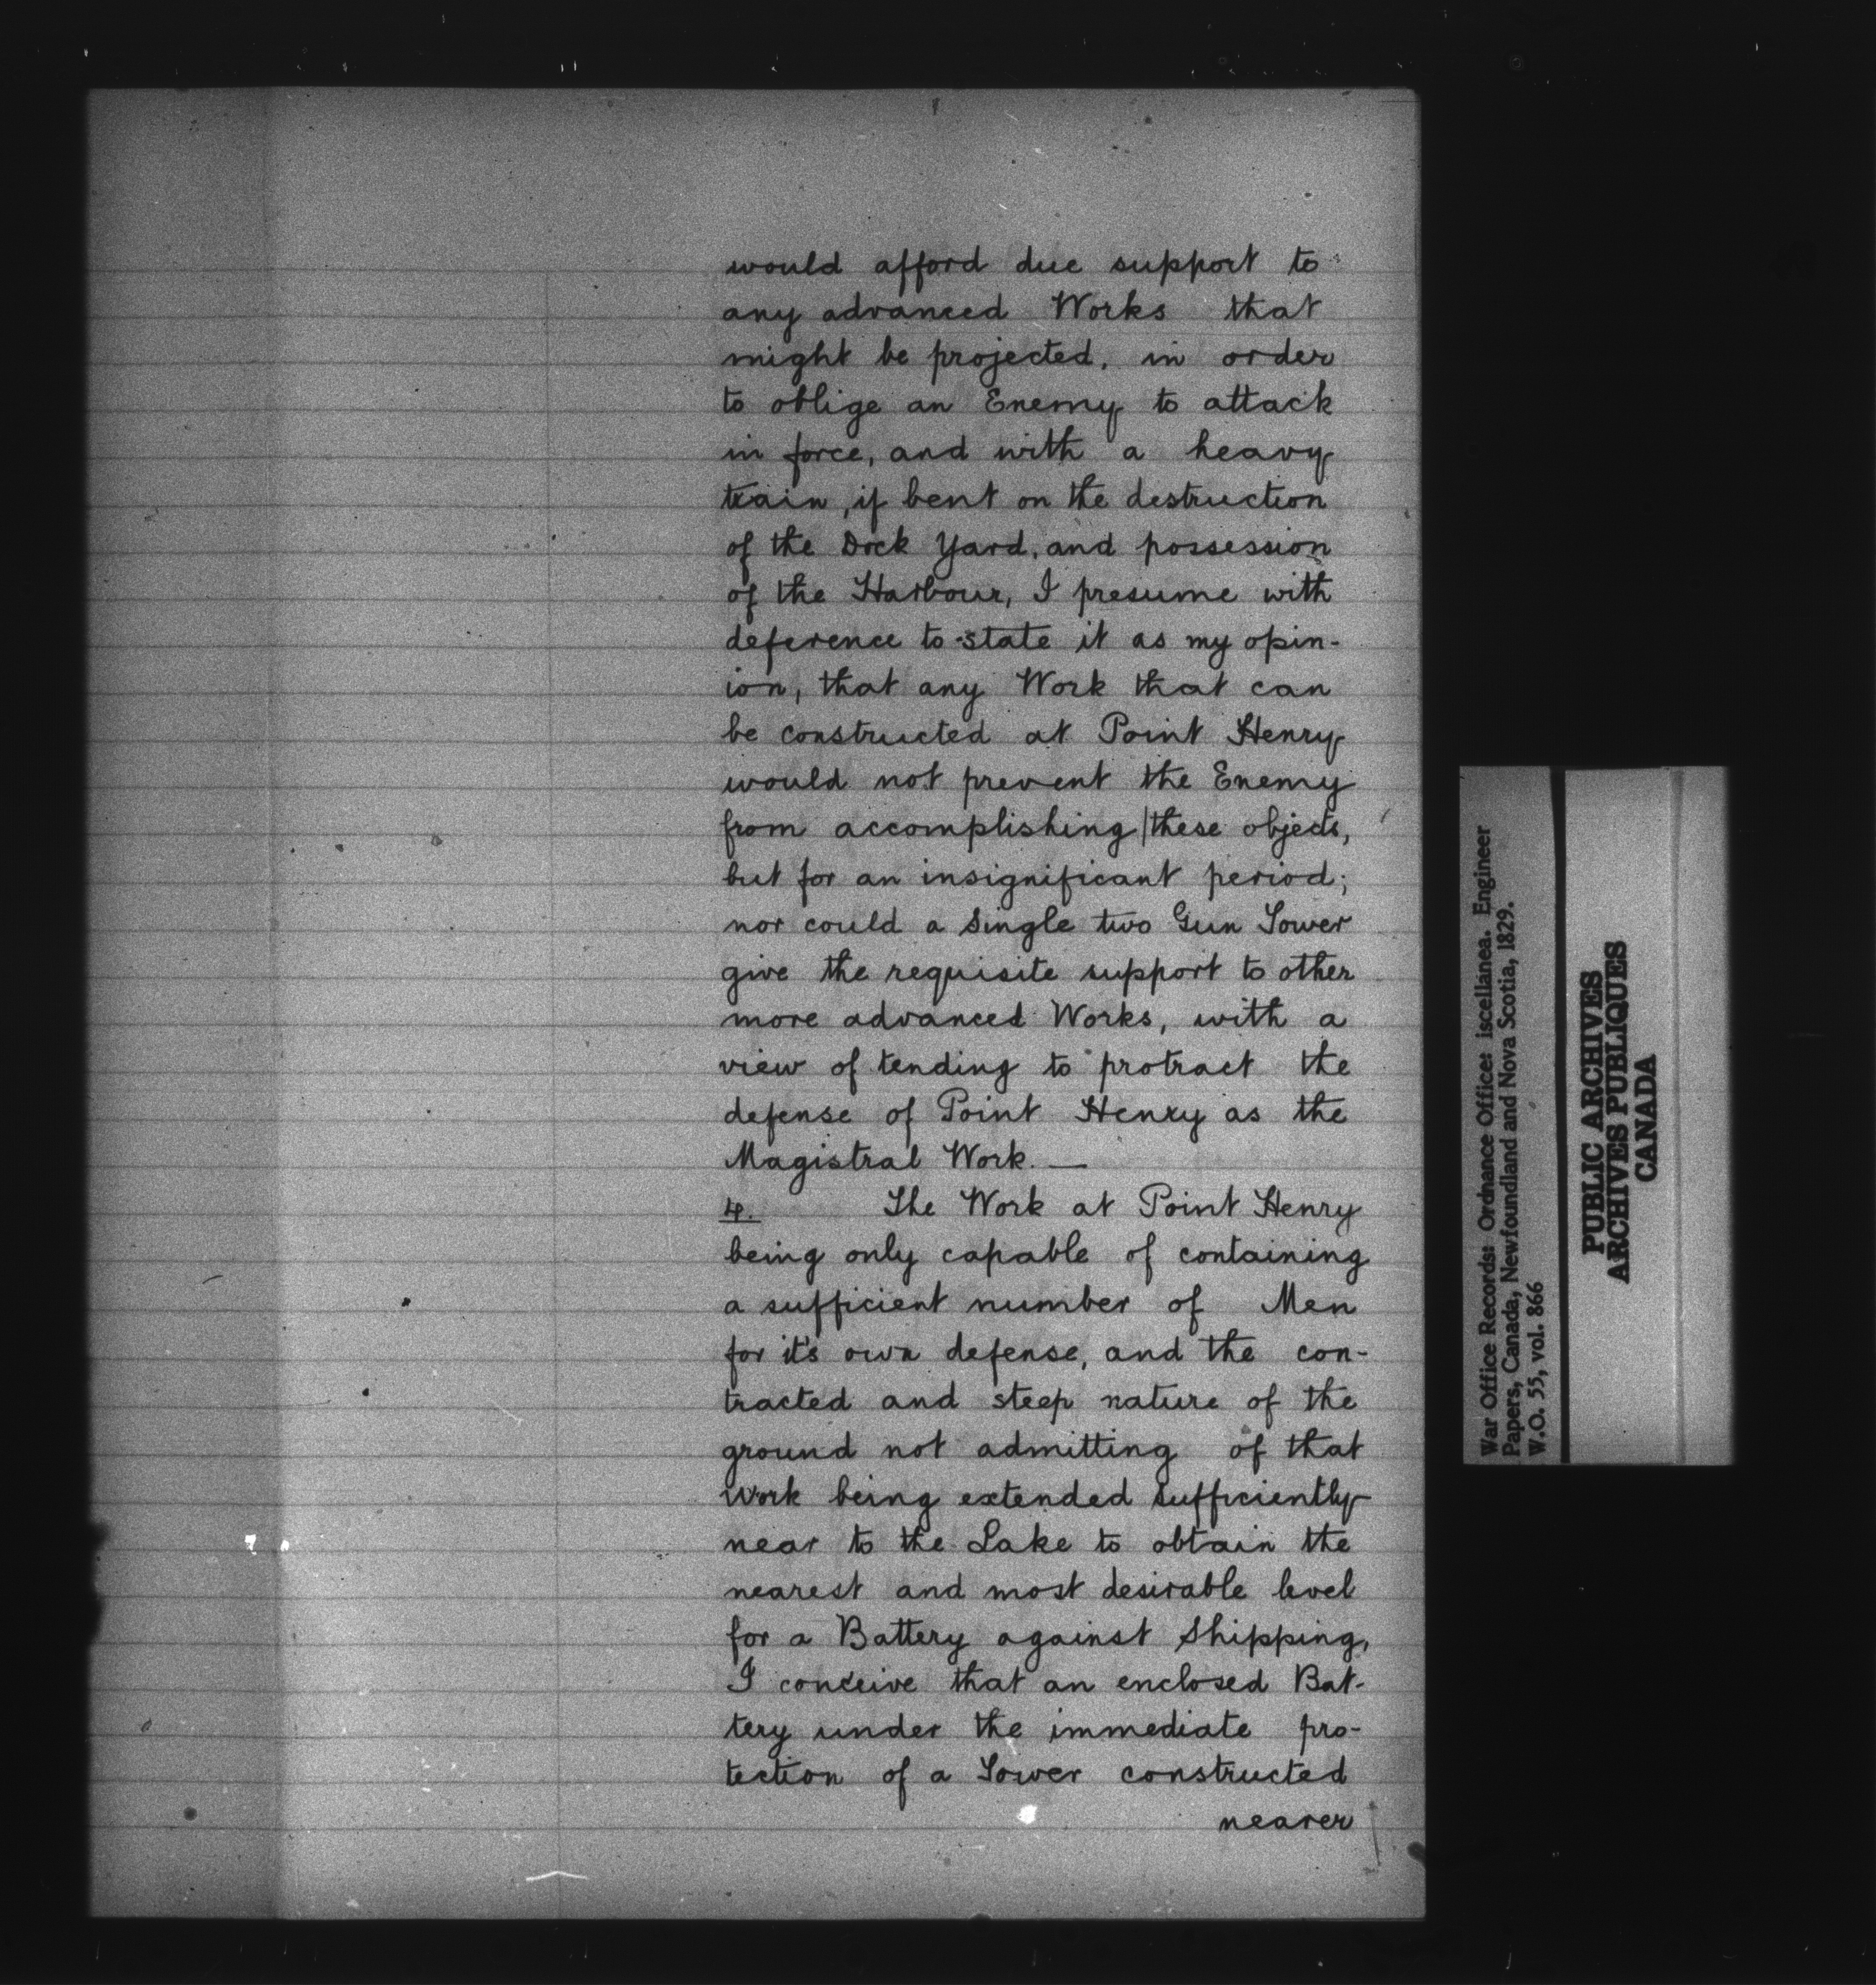 would afford due support to
any advanced Works that
might be projected, in order
to oblige an Enemy to attack
in force, and with a heavy
train, if bent on the destruction
of the Dock Yard, and possession
of the Harbour, I presume with
deference to state it as my opin-
ion, that any Work that can
be constructed at Point Henry
would not prevent the Enemy
from accomplishing these objects,
but for an insignificant period;
nor could a single two Gun Tower
give the requisite support to other
more advanced Works, with a
view of tending to protract the
defense of Point Henry as the
Magistral Work. —
4. The Work at Point Henry
being only capable of containing
a sufficient number of Men
for it's own defense, and the con-
tracted and steep nature of the
ground not admitting of that
Work being extended sufficiently
near to the Lake to obtain the
nearest and most desirable level
for a Battery against Shipping,
I conceive that an enclosed Bat-
tery under the immediate pro-
tection of a Tower constructed
nearer
War Office Records: Ordnance Office: iscellanea. Engineer
Papers, Canada, Newfoundland and Nova Scotia, 1829.
W.O. 55, vol. 866
PUBLIC ARCHIVES
ARCHIVES PUBLIQUES
CANADA